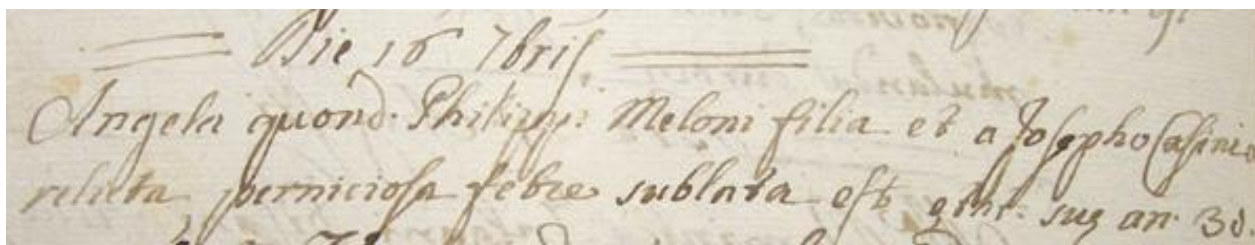 Die 16 7bris.
Angela quond. Philippi Meloni filia et a Josepho Casini
relicta perniciosa febre sublata est ętat. suę an. 30